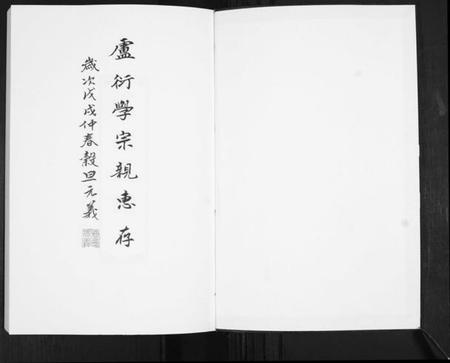 盧衍學宗親惠存
歲次戊戌仲春穀旦元義